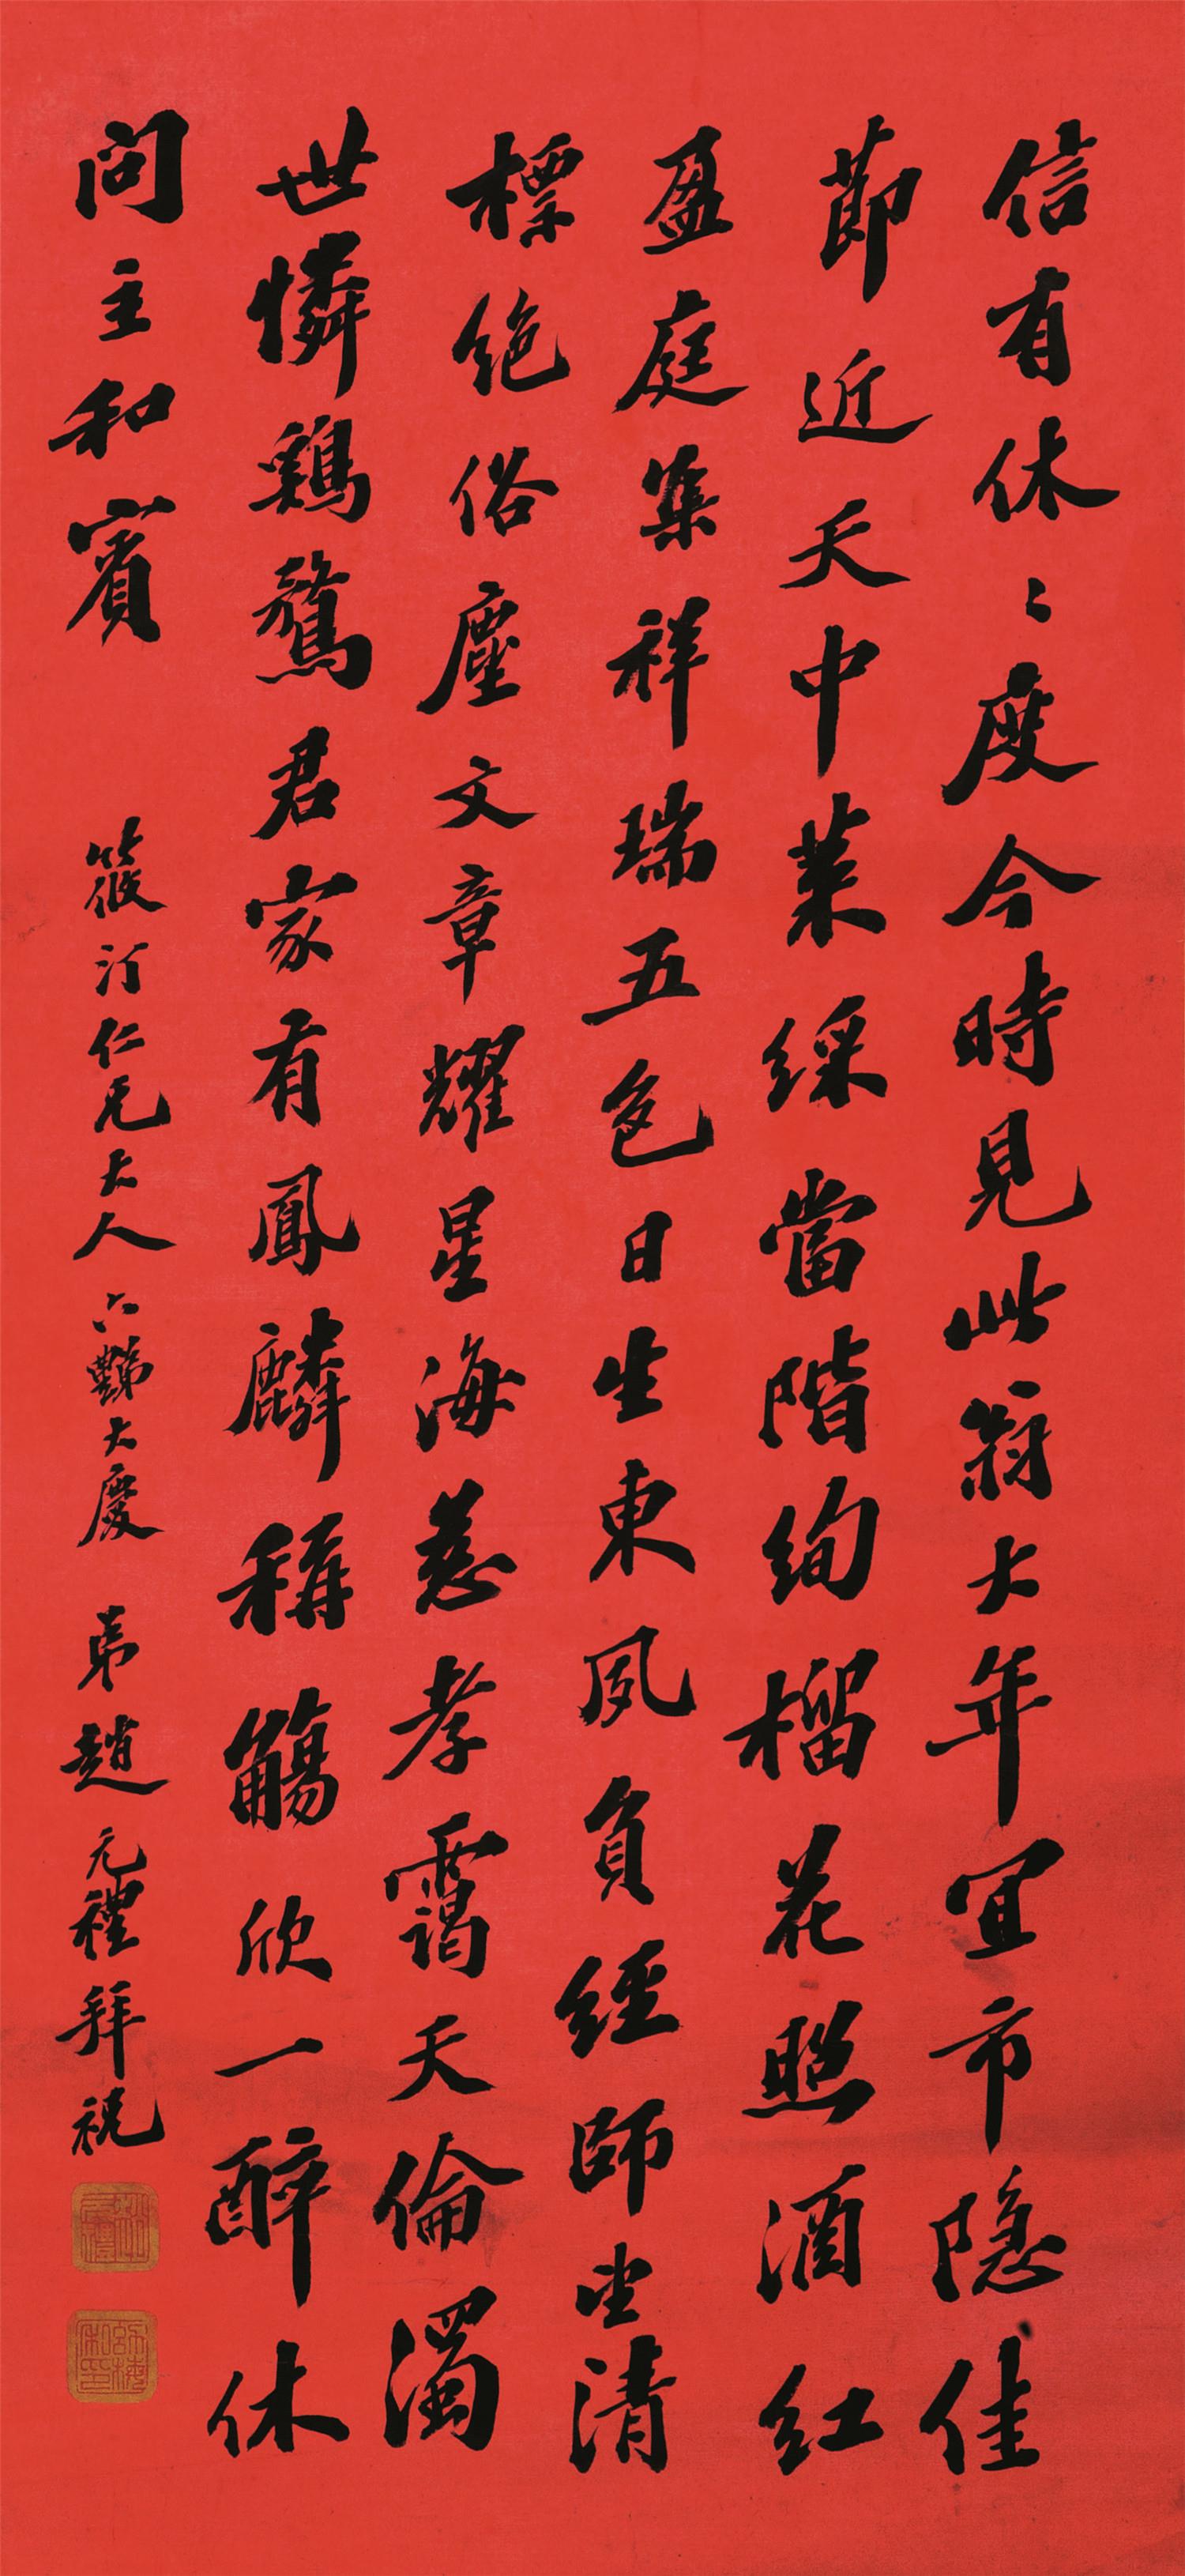 信有休〻度今時見此翁大年宜市隱佳
節近天中萊綵當階絢榴花照酒紅
盈庭集祥瑞五色日生東夙負經師坐清
標絕俗塵文章耀星海慈孝靄天倫濁
世憐鷄鶩君家有鳳麟稱觴欣一醉休
問主和賓
筱汀仁兄大人六豑大慶 弟趙元禮拜祝